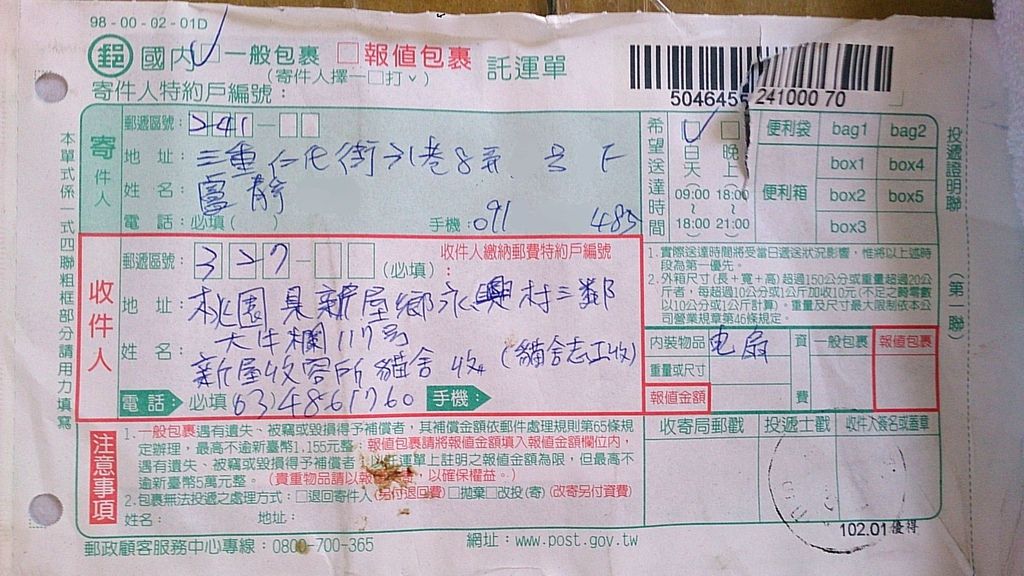 98-00-02-01D
郵 國內 □一般包裹 □報值包裹 託運單
(寄件人擇一□打ˇ)
寄件人特約戶編號：
5046455 241000 70
寄件人
郵遞區號：241-□□
地 址：三重仁化街 巷8弄 号 F
姓 名：盧靜
電 話：必填( ) 手機：091 485
希望送達時間
白天 晚上
09:00 18:00
18:00 21:00
便利袋 bag1 bag2
便利箱 box1 box4
box2 box5
box3
投遞證明聯
(第一聯)
本單式係一式四聯粗框部分請用力填寫
收件人
郵遞區號：327-□□ (必填)： 收件人繳納郵費特約戶編號
地 址：桃園县新屋鄉永興村三鄰
大牛欄117号
姓 名：新屋收容所貓舍 收 (貓舍志工收)
電話： 必填(03)4861760 手機：
1.實際送達時間將受當日遞送狀況影響，惟將以上述時
段為第一優先。
2.外箱尺寸(長+寬+高)超過150公分或重量超過20公
斤者，每超過10公分或1公斤加收10元(不足之畸零數
以10公分或1公斤計算)。重量及尺寸最大限制依本公
司營業規章第46條規定。
內裝物品 电扇
重量或尺寸
報值金額
資費
一般包裹 報值包裹
收寄局郵戳 投遞士戳 收件人簽名或蓋章
注意事項
1.一般包裹遇有遺失、被竊或毀損得予補償者，其補償金額依郵件處理規則第65條規
定辦理，最高不逾新臺幣1,155元整；報值包裹請將報值金額填入報值金額欄位內，
遇有遺失、被竊或毀損得予補償者 託運單上註明之報值金額為限，但最高不
逾新臺幣5萬元整。(貴重物品請以報 ，以確保權益。)
2.包裹無法投遞之處理方式：□退回寄件人(另付退回費)□拋棄□改投(寄) (改寄另付資費)
姓名： 地址：
102.01優得
郵政顧客服務中心專線：0800-700-365 網址：www.post.gov.tw